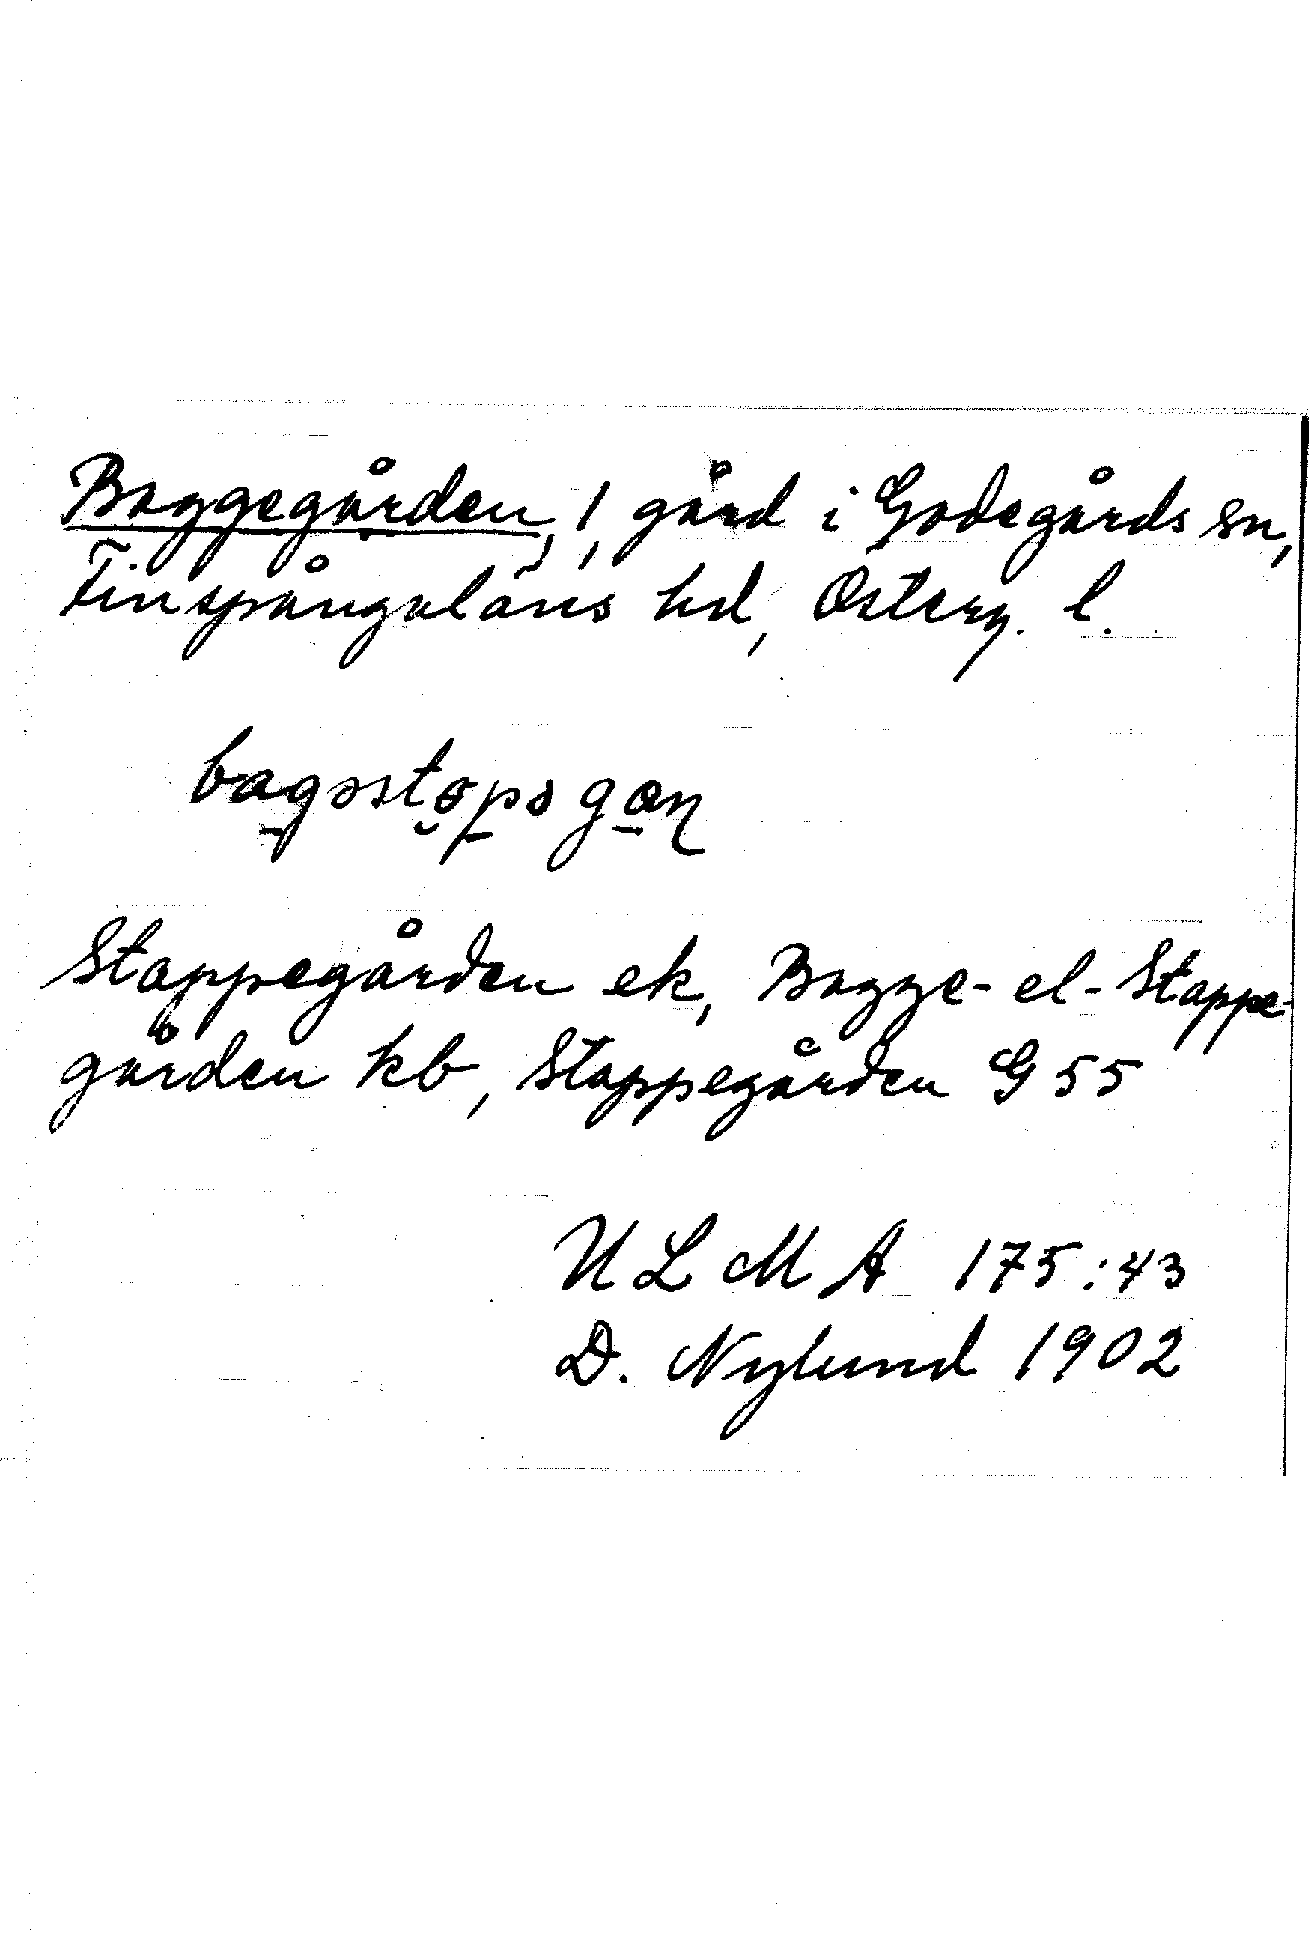 Baggegården, 1, gård i Godegårds sn,
Finspångaläns hd, Österg. l.
bagəstapəgan
Stappegården ek, Bagge- el- Stappe-
gården kb, Stappegården G 55
ULMA 175:43
D. Nylund 1902